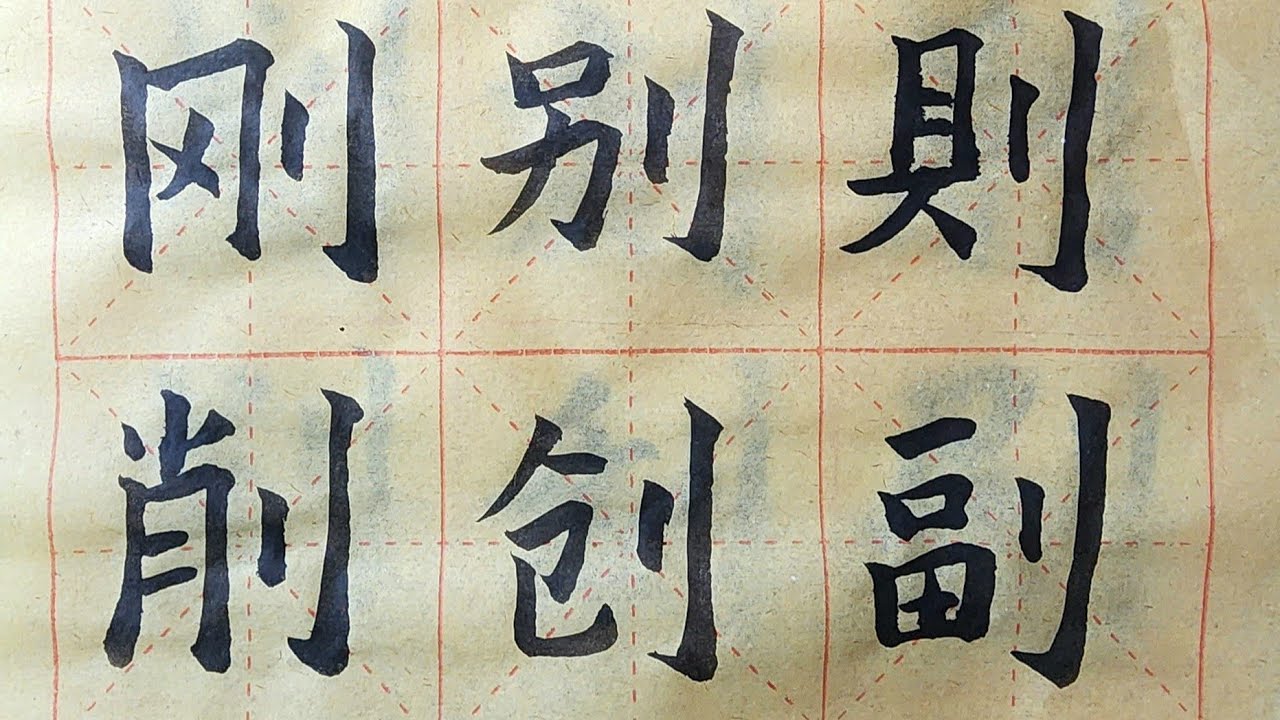 刚别則
削创副